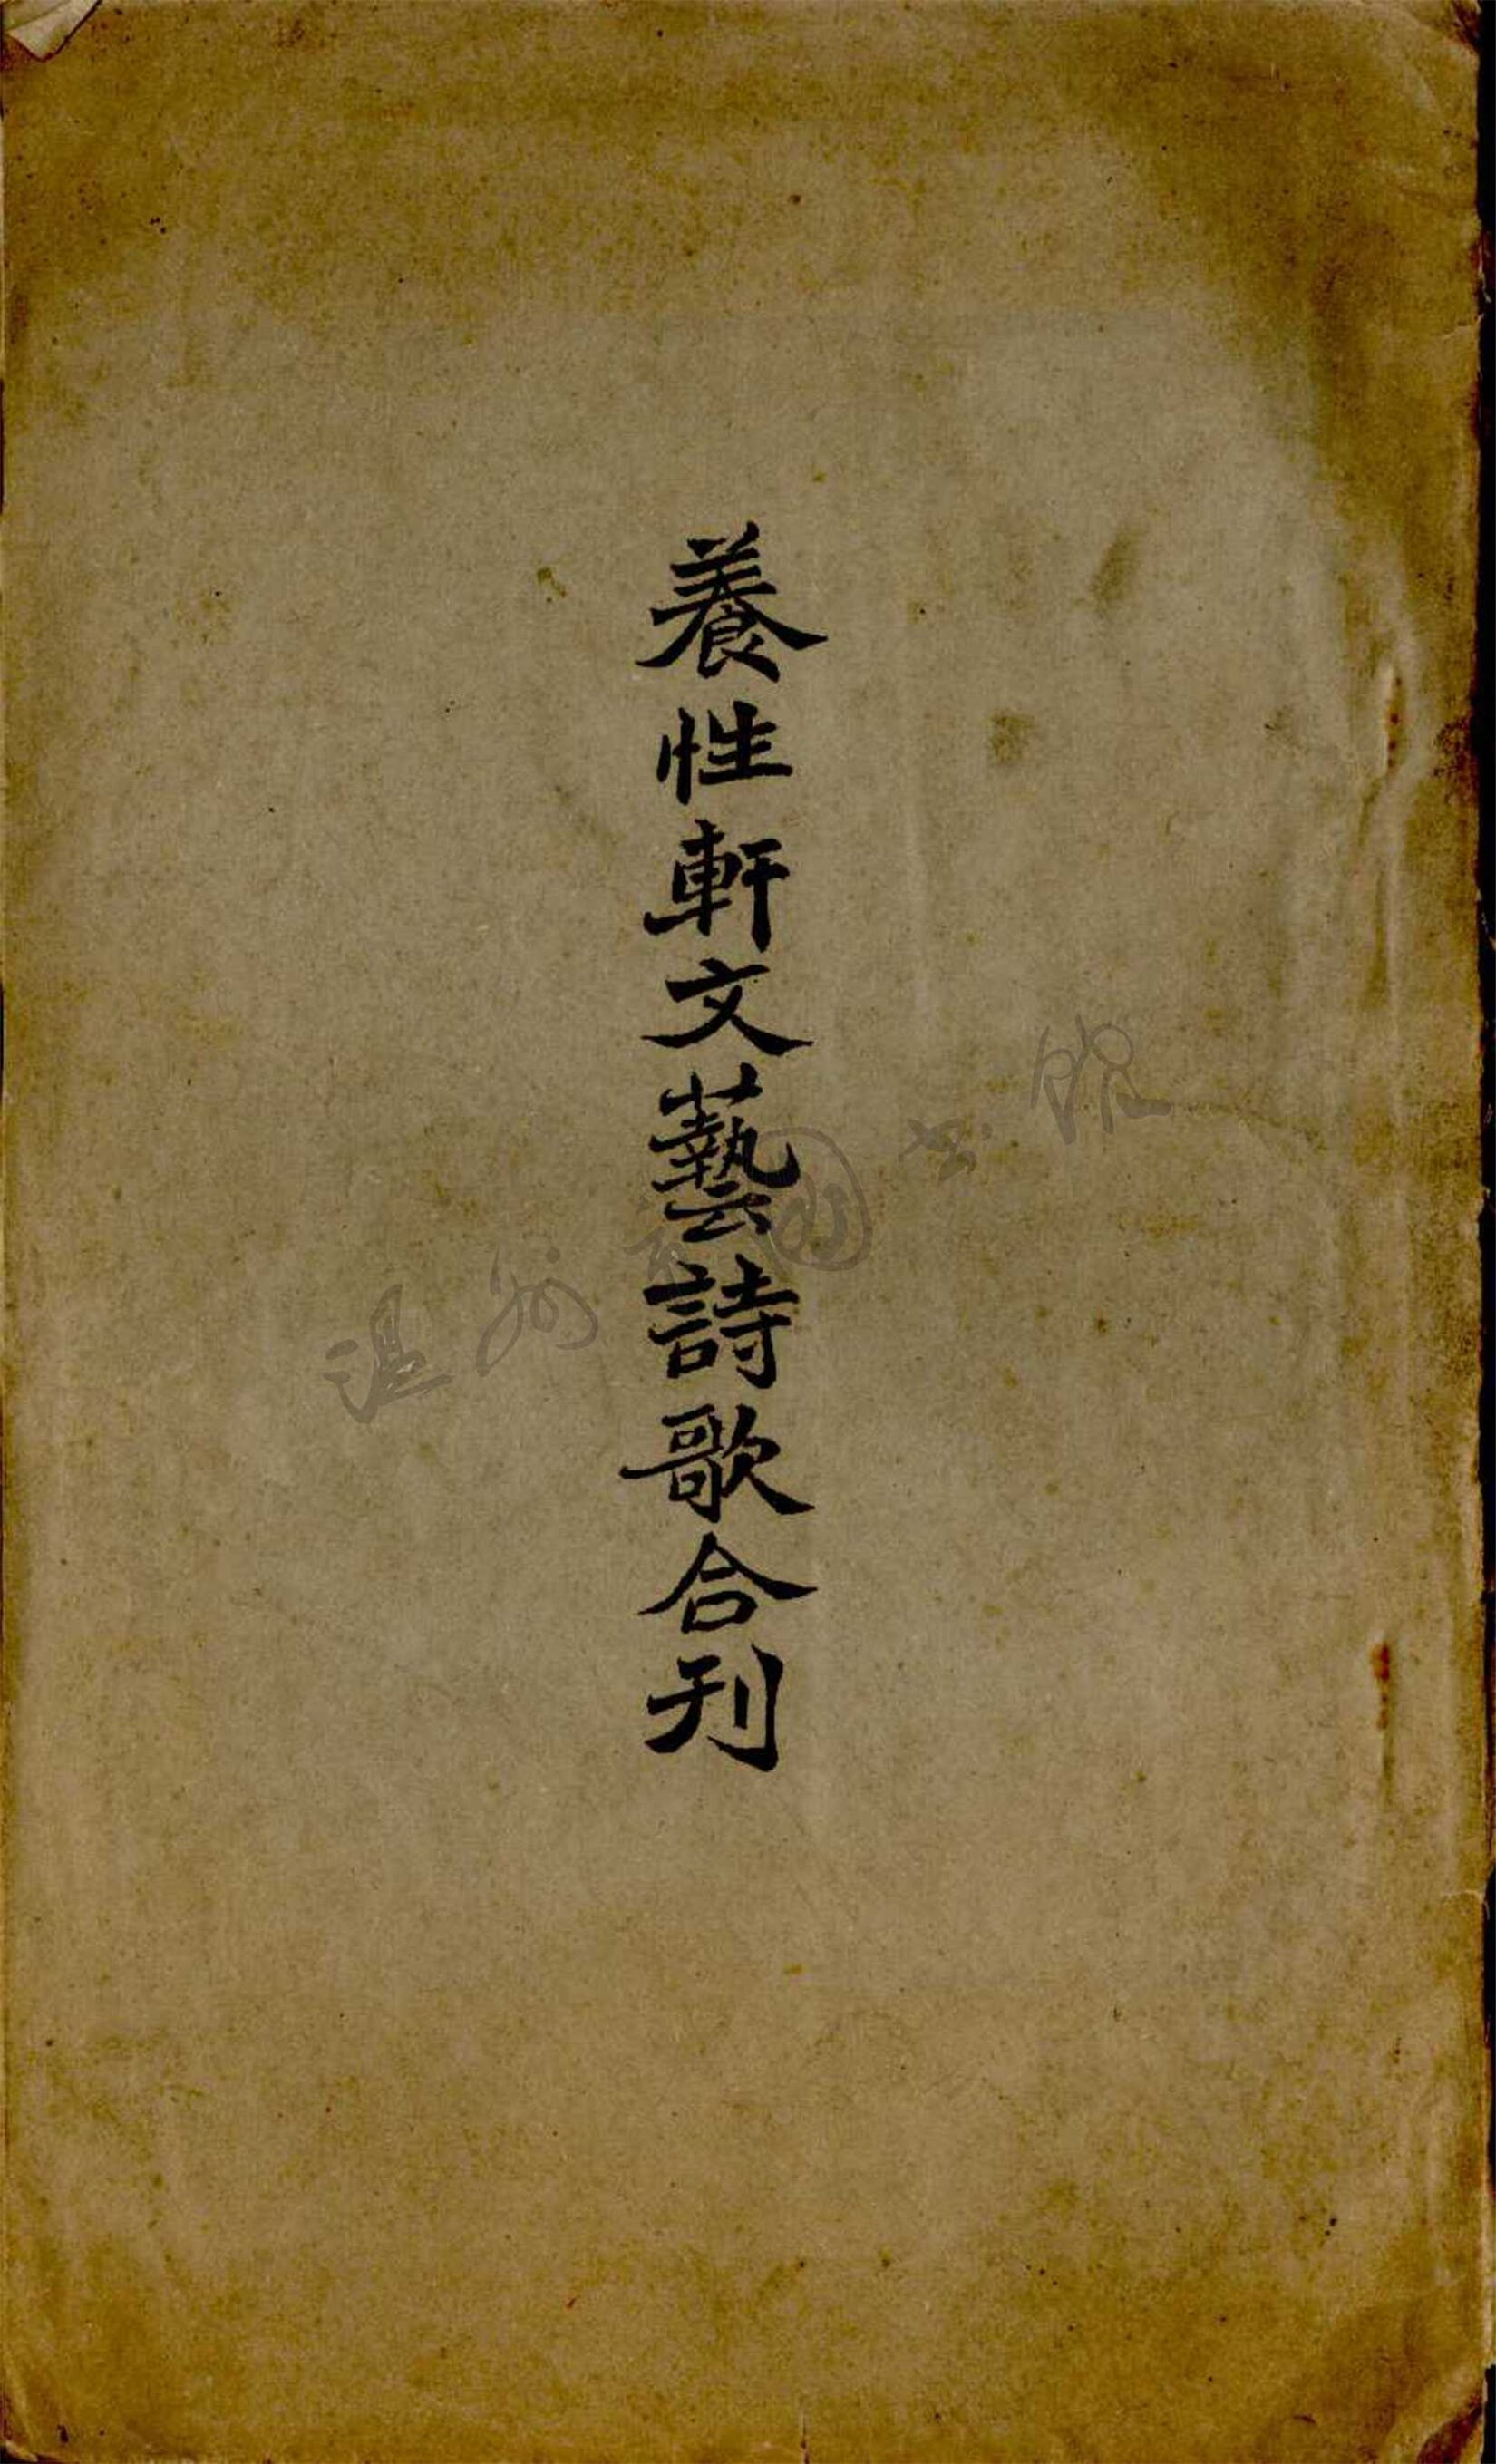 養性軒文藝詩歌合刊
温州市图书馆